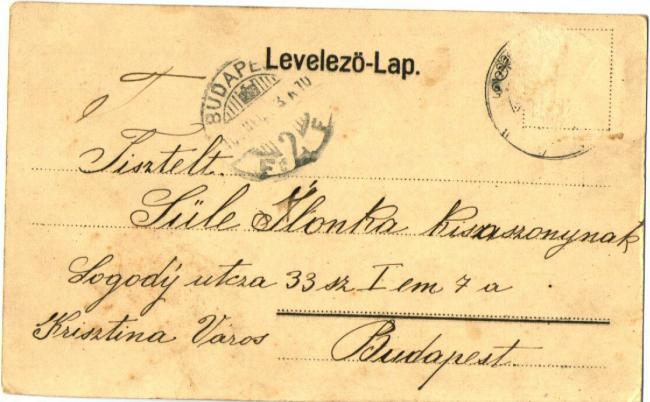 Levelező-Lap.
BUDAPE
T
Tisztelt
Süle Ilonka kisaszonynak
Logodÿ utcza 33 sz I em 7 a
Krisztina Város
Budapest.